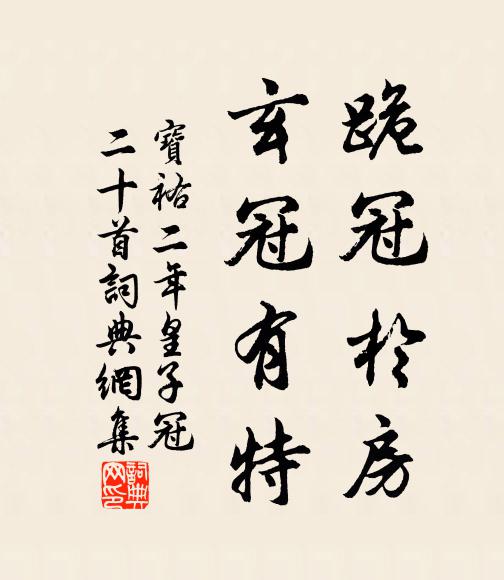 跪冠於房
玄冠有特
寶祐二年皇子冠
二十首詞典網集
詞典
网印